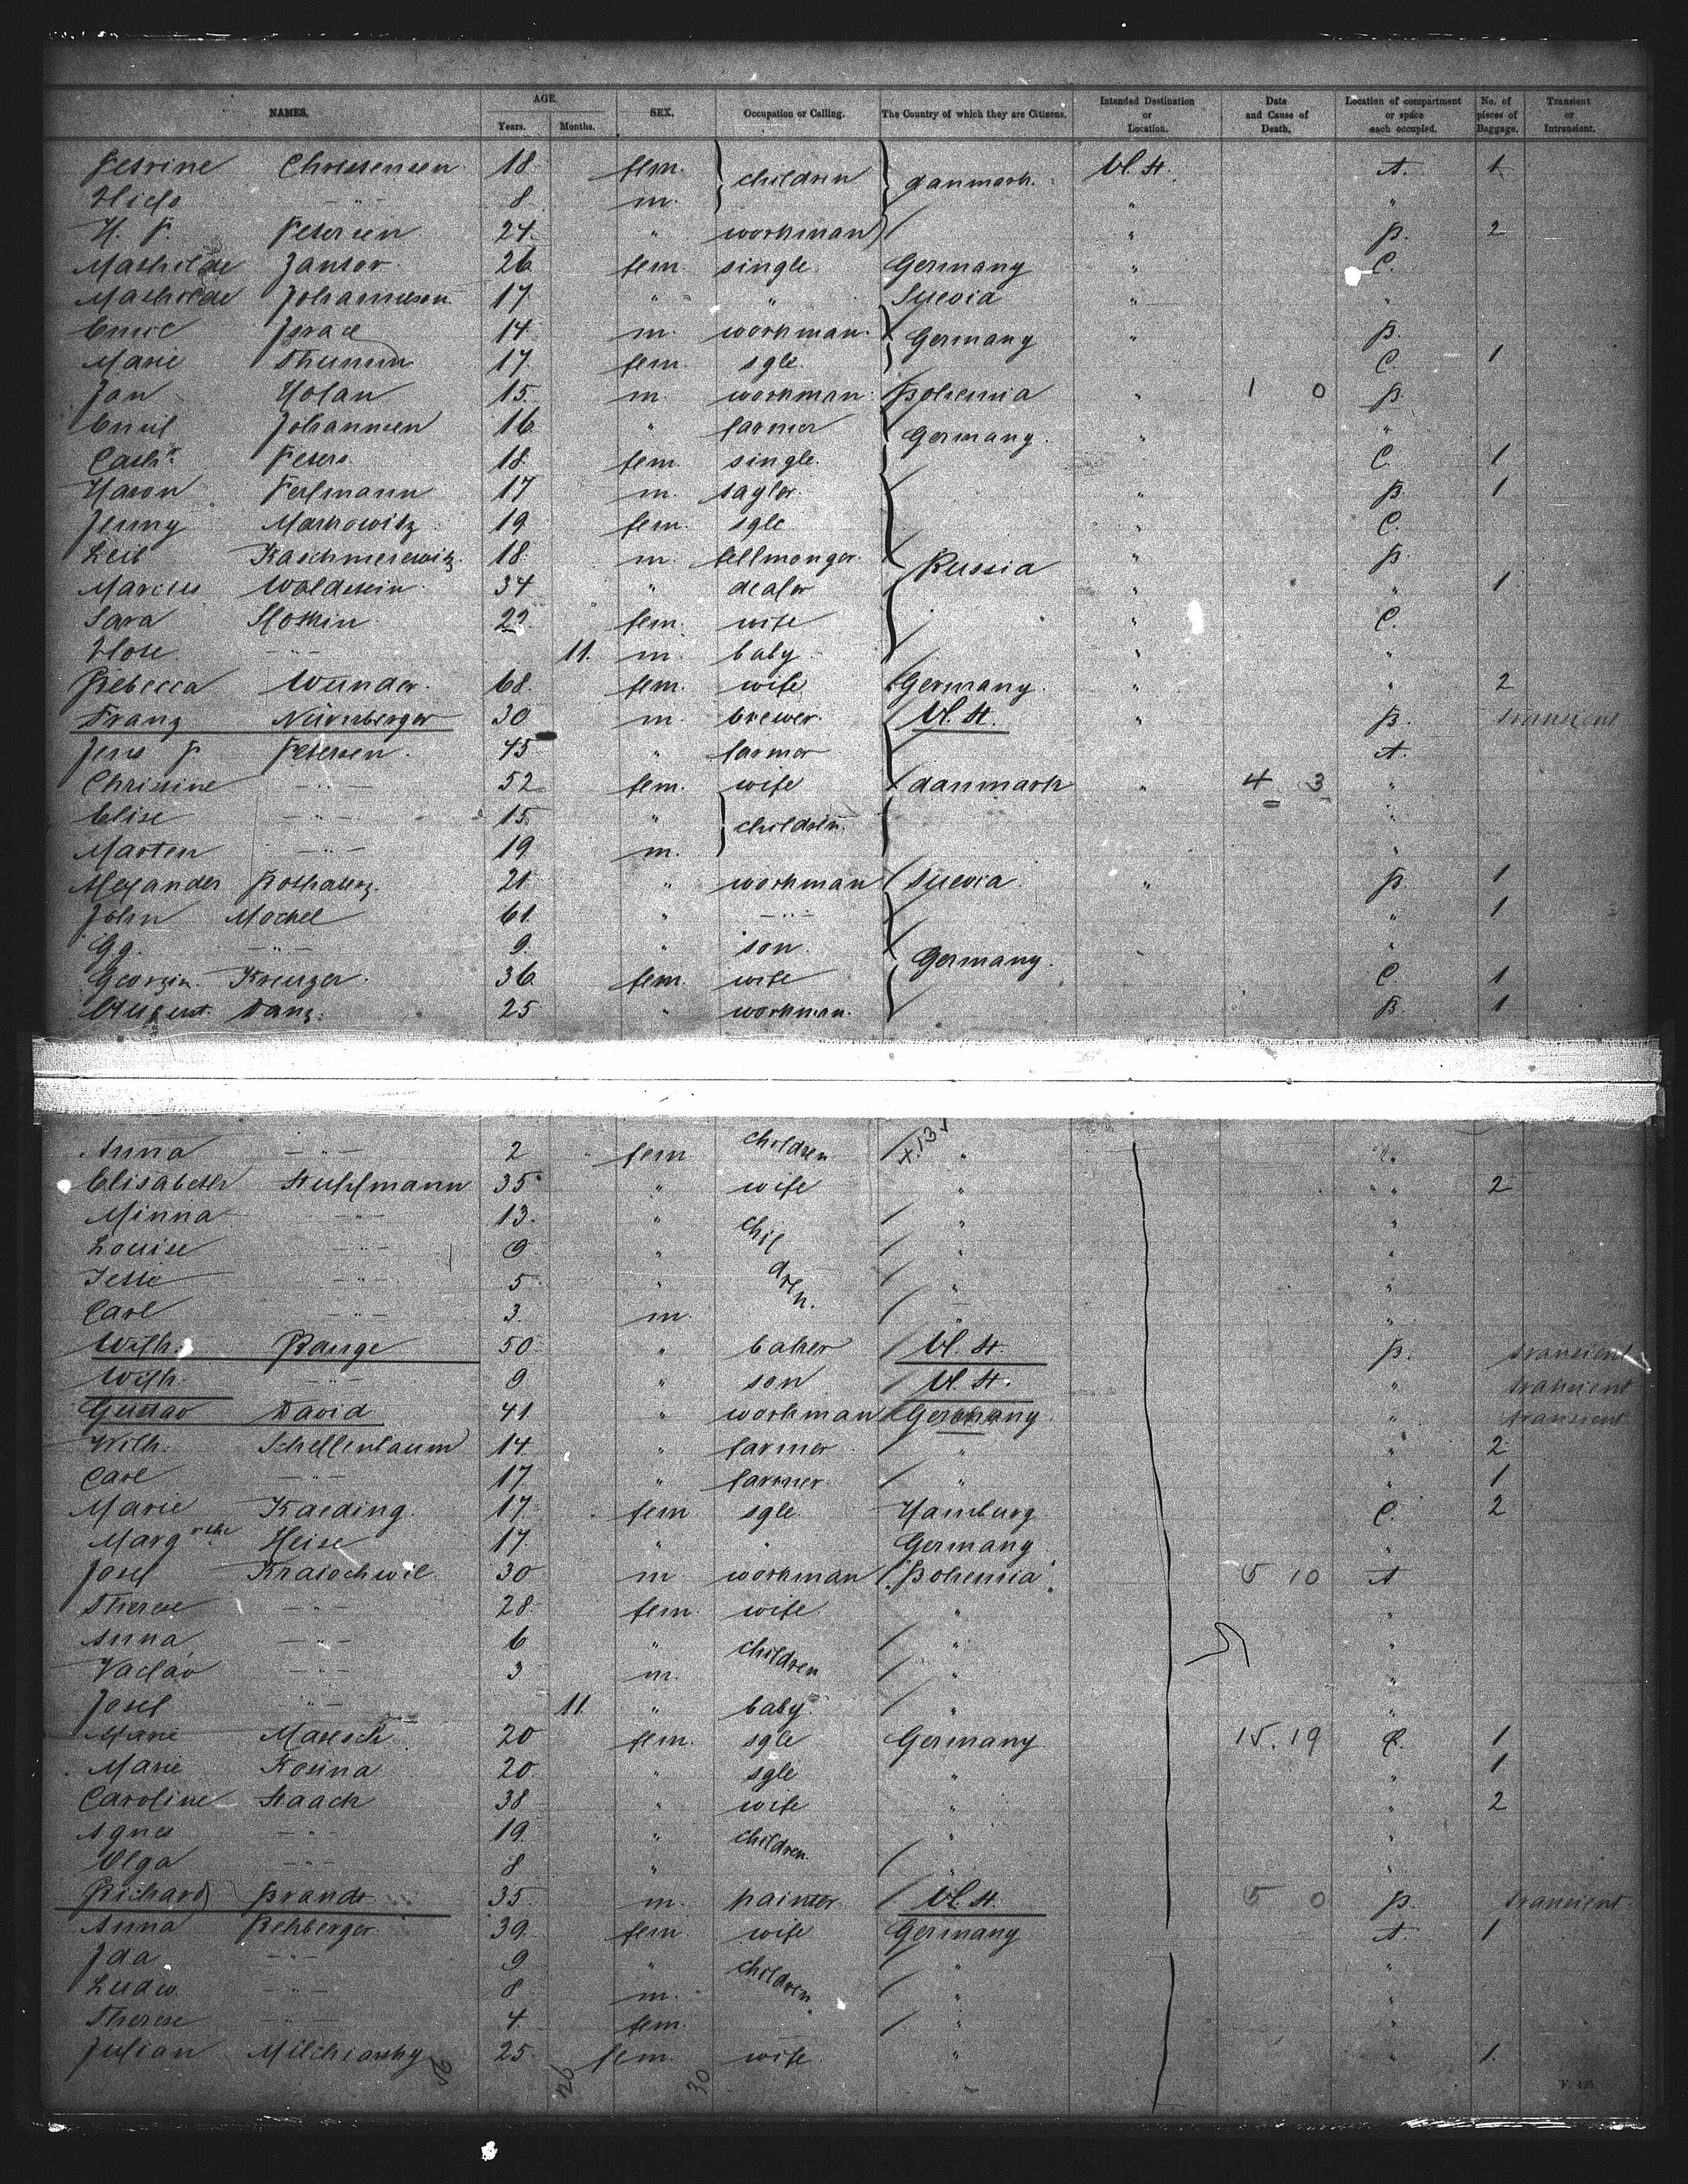 NAMES. AGE. Years. Months. SEX. Occupation or Calling. The Country of which they are Citizens. Intended Destination or Location. Date and Cause of Death. Location of compartment or space each occupied. No. of pieces of Baggage. Transient or Intransient.
Petrine Christensen 18 fem. children danmark. U. St. A. 1
8 m. " "
H. P. Petersen 24 " workman " B. 2
Mathilde 26 fem. single Germany " C.
Mathilde Johannesson 17 " " Suevia " "
14 m. workman. Germany " B.
Marie 17 fem. sgle. C. 1
Jan Holan 15 m. workman. Bohemia " 1 0 B.
Emil Johannsen 16 " farmer Germany. " "
Cath. Peters 18 fem. single. C. 1
Perlmann 17 m. " B. 1
Jenny Markowitz 19 fem. sgle " C.
Leib Kaschmerewitz 18 m. fellmonger. Russia " B.
Marcus Waldstein 34 " dealer " " 1
Sara Slotkin 22 fem. wife " C.
11. m. baby " "
Rebecca Wunder 68 fem. wife Germany. " " 2
Franz Nürnberger 30 m. brewer. U. St. " B. transient
Jens P Petersen 45 " farmer A.
Christine -"- 52 fem. wife danmark " 4 3 "
Elise -"- 15 " children "
Marten -"- 19 m. "
Alexander 21 " workman Suevia. " B. 1
John Mockel 61 " -"- " 1
Gg. -"- 9. " son. Germany. " "
Georgin. Kreuzer 36 fem. wife C. 1
August. Danz. 25 " workman. B. 1
Anna -"- 2 fem children "
Elisabeth Stuhlmann 35 " wife " " 2
Minna -"- 13. " children " "
Louise -"- 9 " " "
-"- 5 " " "
Carl -"- 3. m. "
Wilh. Range 50 " baker U. St. B. transient
Wilh. -"- 9 " son U. St. " transient
Gustav David 41 " workman Germany. " transient
Wilh. Schellenbaum 14 " farmer " " 2
Carl -"- 17 " farmer " " 1
Marie Kaeding. 17. fem. sgle. Hamburg. C. 2
Margrethe Heise 17. " " Germany "
Josef Kratochwil 30 m workman "Bohemia" 5 10 A
Therese -"- 28. fem. wife. " "
Anna -"- 6 " children " "
Václáv -"- 3 m. " "
Josef -"- 11. " baby. " "
Marie Maresch 20 fem. sgle Germany 15. 19 C. 1
Marie Kosina 20. " sgle " " 1
Caroline Staack 38 " wife " " 2
Agnes -"- 19. " children. " "
Olga -"- 8 " " "
Richard Brandt 35 m. painter U. St. 5 0 B. transient.
Anna Rehberger 39. fem. wife Germany A. 1
Ida -"- 9 " children " "
Ludw. -"- 8 m. " "
Therese -"- 4 fem. " "
Julian 25 fem. wife. " " 1.
26 30